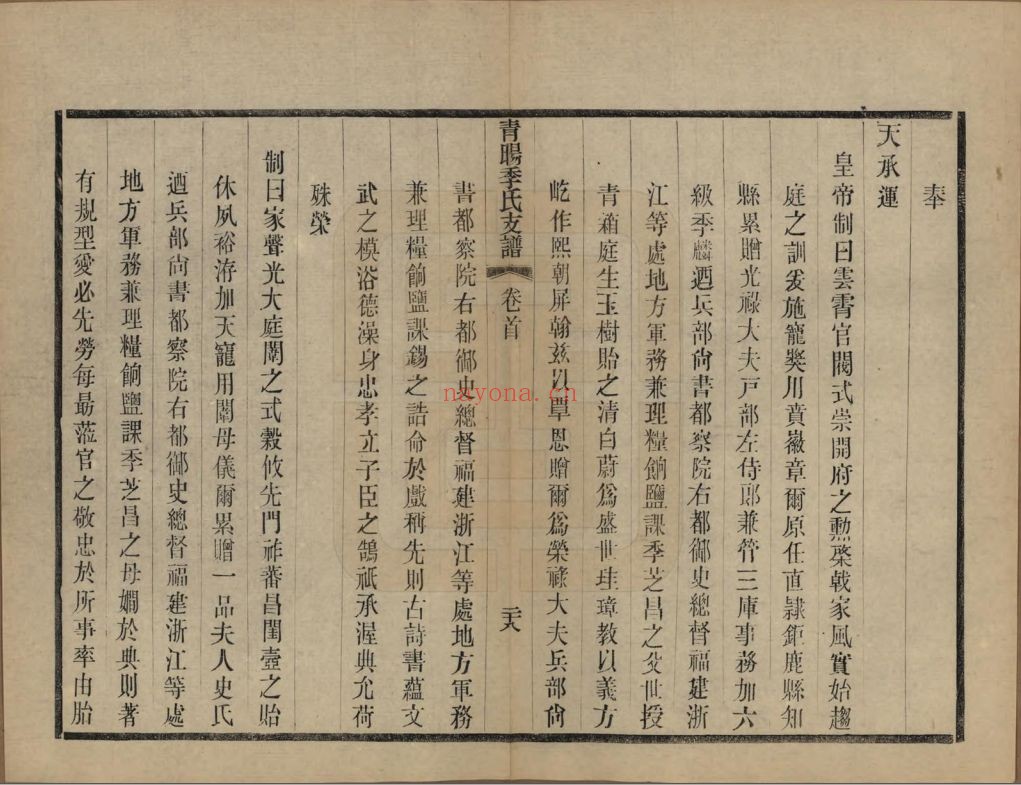 奉
天承運
皇帝制曰雲霄官閥式崇開府之勲棨戟家風實始趨
庭之訓爰施寵奬用賁徽章爾原任直隸鉅鹿縣知
縣累贈光祿大夫戸部左侍郎兼管三庫事務加六
級季麟迺兵部尙書都察院右都御史總督福建浙
江等處地方軍務兼理糧餉鹽課季芝昌之父世授
青箱庭生玉樹貽之清白蔚爲盛世珪璋教以義方
屹作熙朝屏翰兹以覃恩贈爾爲榮祿大夫兵部尙
青暘季氏支譜
卷首
二十八
書都察院右都御史總督福建浙江等處地方軍務
兼理糧餉鹽課錫之誥命於戲稱先則古詩書蘊文
武之模浴德澡身忠孝立子臣之鵠祇承渥典允荷
殊榮
制曰家聲光大庭闈之式穀攸先門祚蕃昌閨壼之貽
休夙裕洊加天寵用闡母儀爾累贈一品夫人史氏
迺兵部尙書都察院右都御史總督福建浙江等處
地方軍務兼理糧餉鹽課季芝昌之母嫺於典則著
有規型愛必先勞每最蒞官之敬忠於所事率由胎
nayona.cn